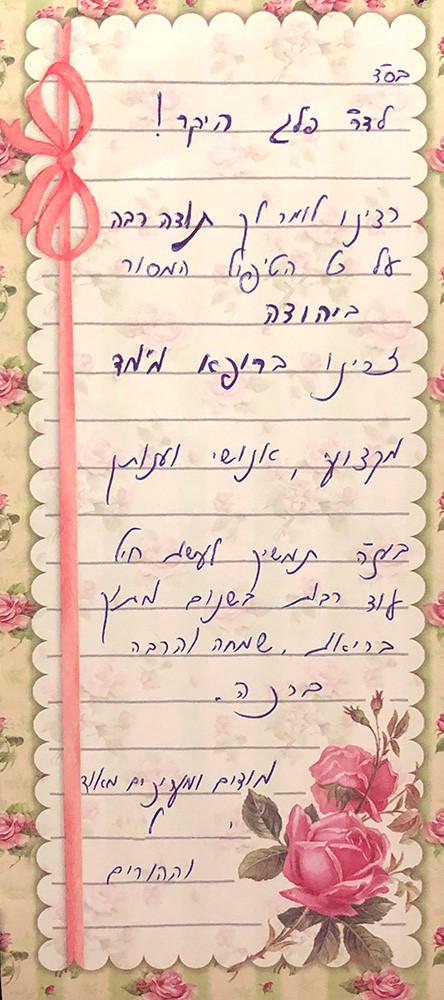 בס״ד
לדר׳ פלג היקר!
רצינו לומר לך תודה רבה
על כל הטיפול המסור
ביהודה
זכינו ברופא מיוחד
מקצועי, אנושי וענוותן
בע״ה תמשיך לעשות חיל
עוד רבות בשנים מתוך
בריאות, שמחה והרבה
ברכה.
מודים ומעריכים מאוד
וההורים